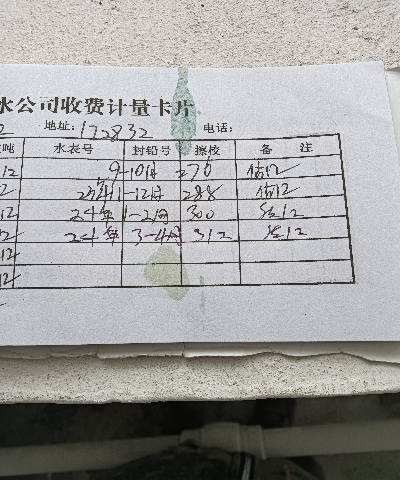 水公司收费计量卡片
2 地址: 172832 电话:
吨 水表号 封铅号 擦校 备注
12 9-10月 276 估12
2 25年11-12月 288 估12
12 24年 1-2月 300 12
12 24年 3-4月 312 12
12